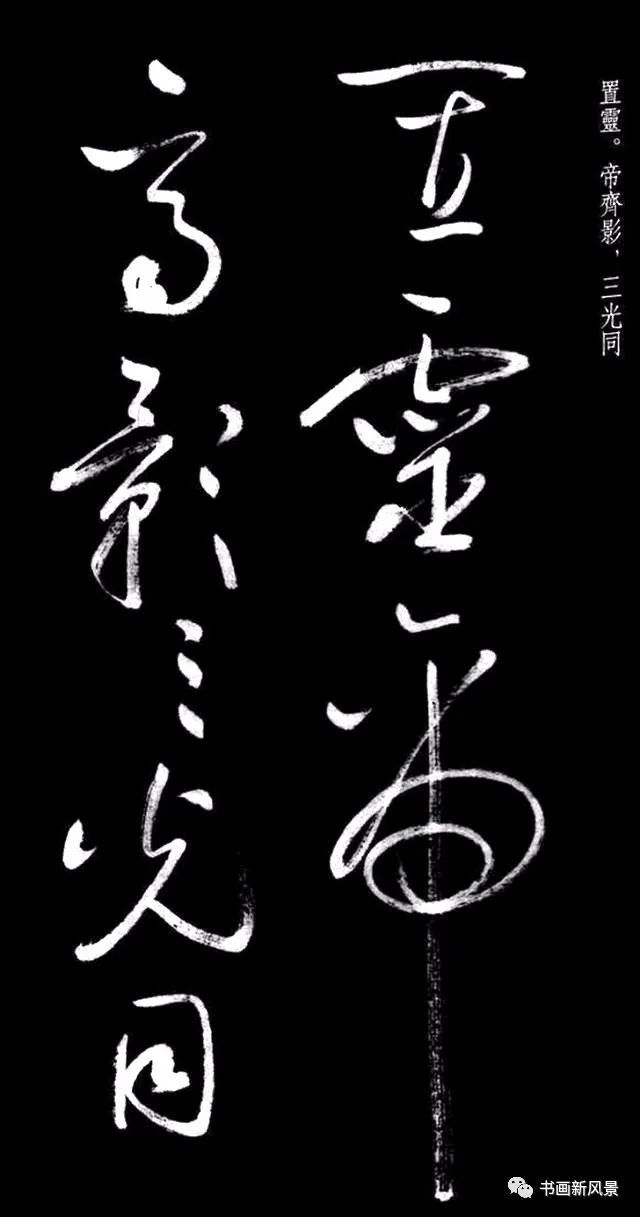 置靈。帝齊影，三光同
置靈帝
齊影三光同
书画新风景